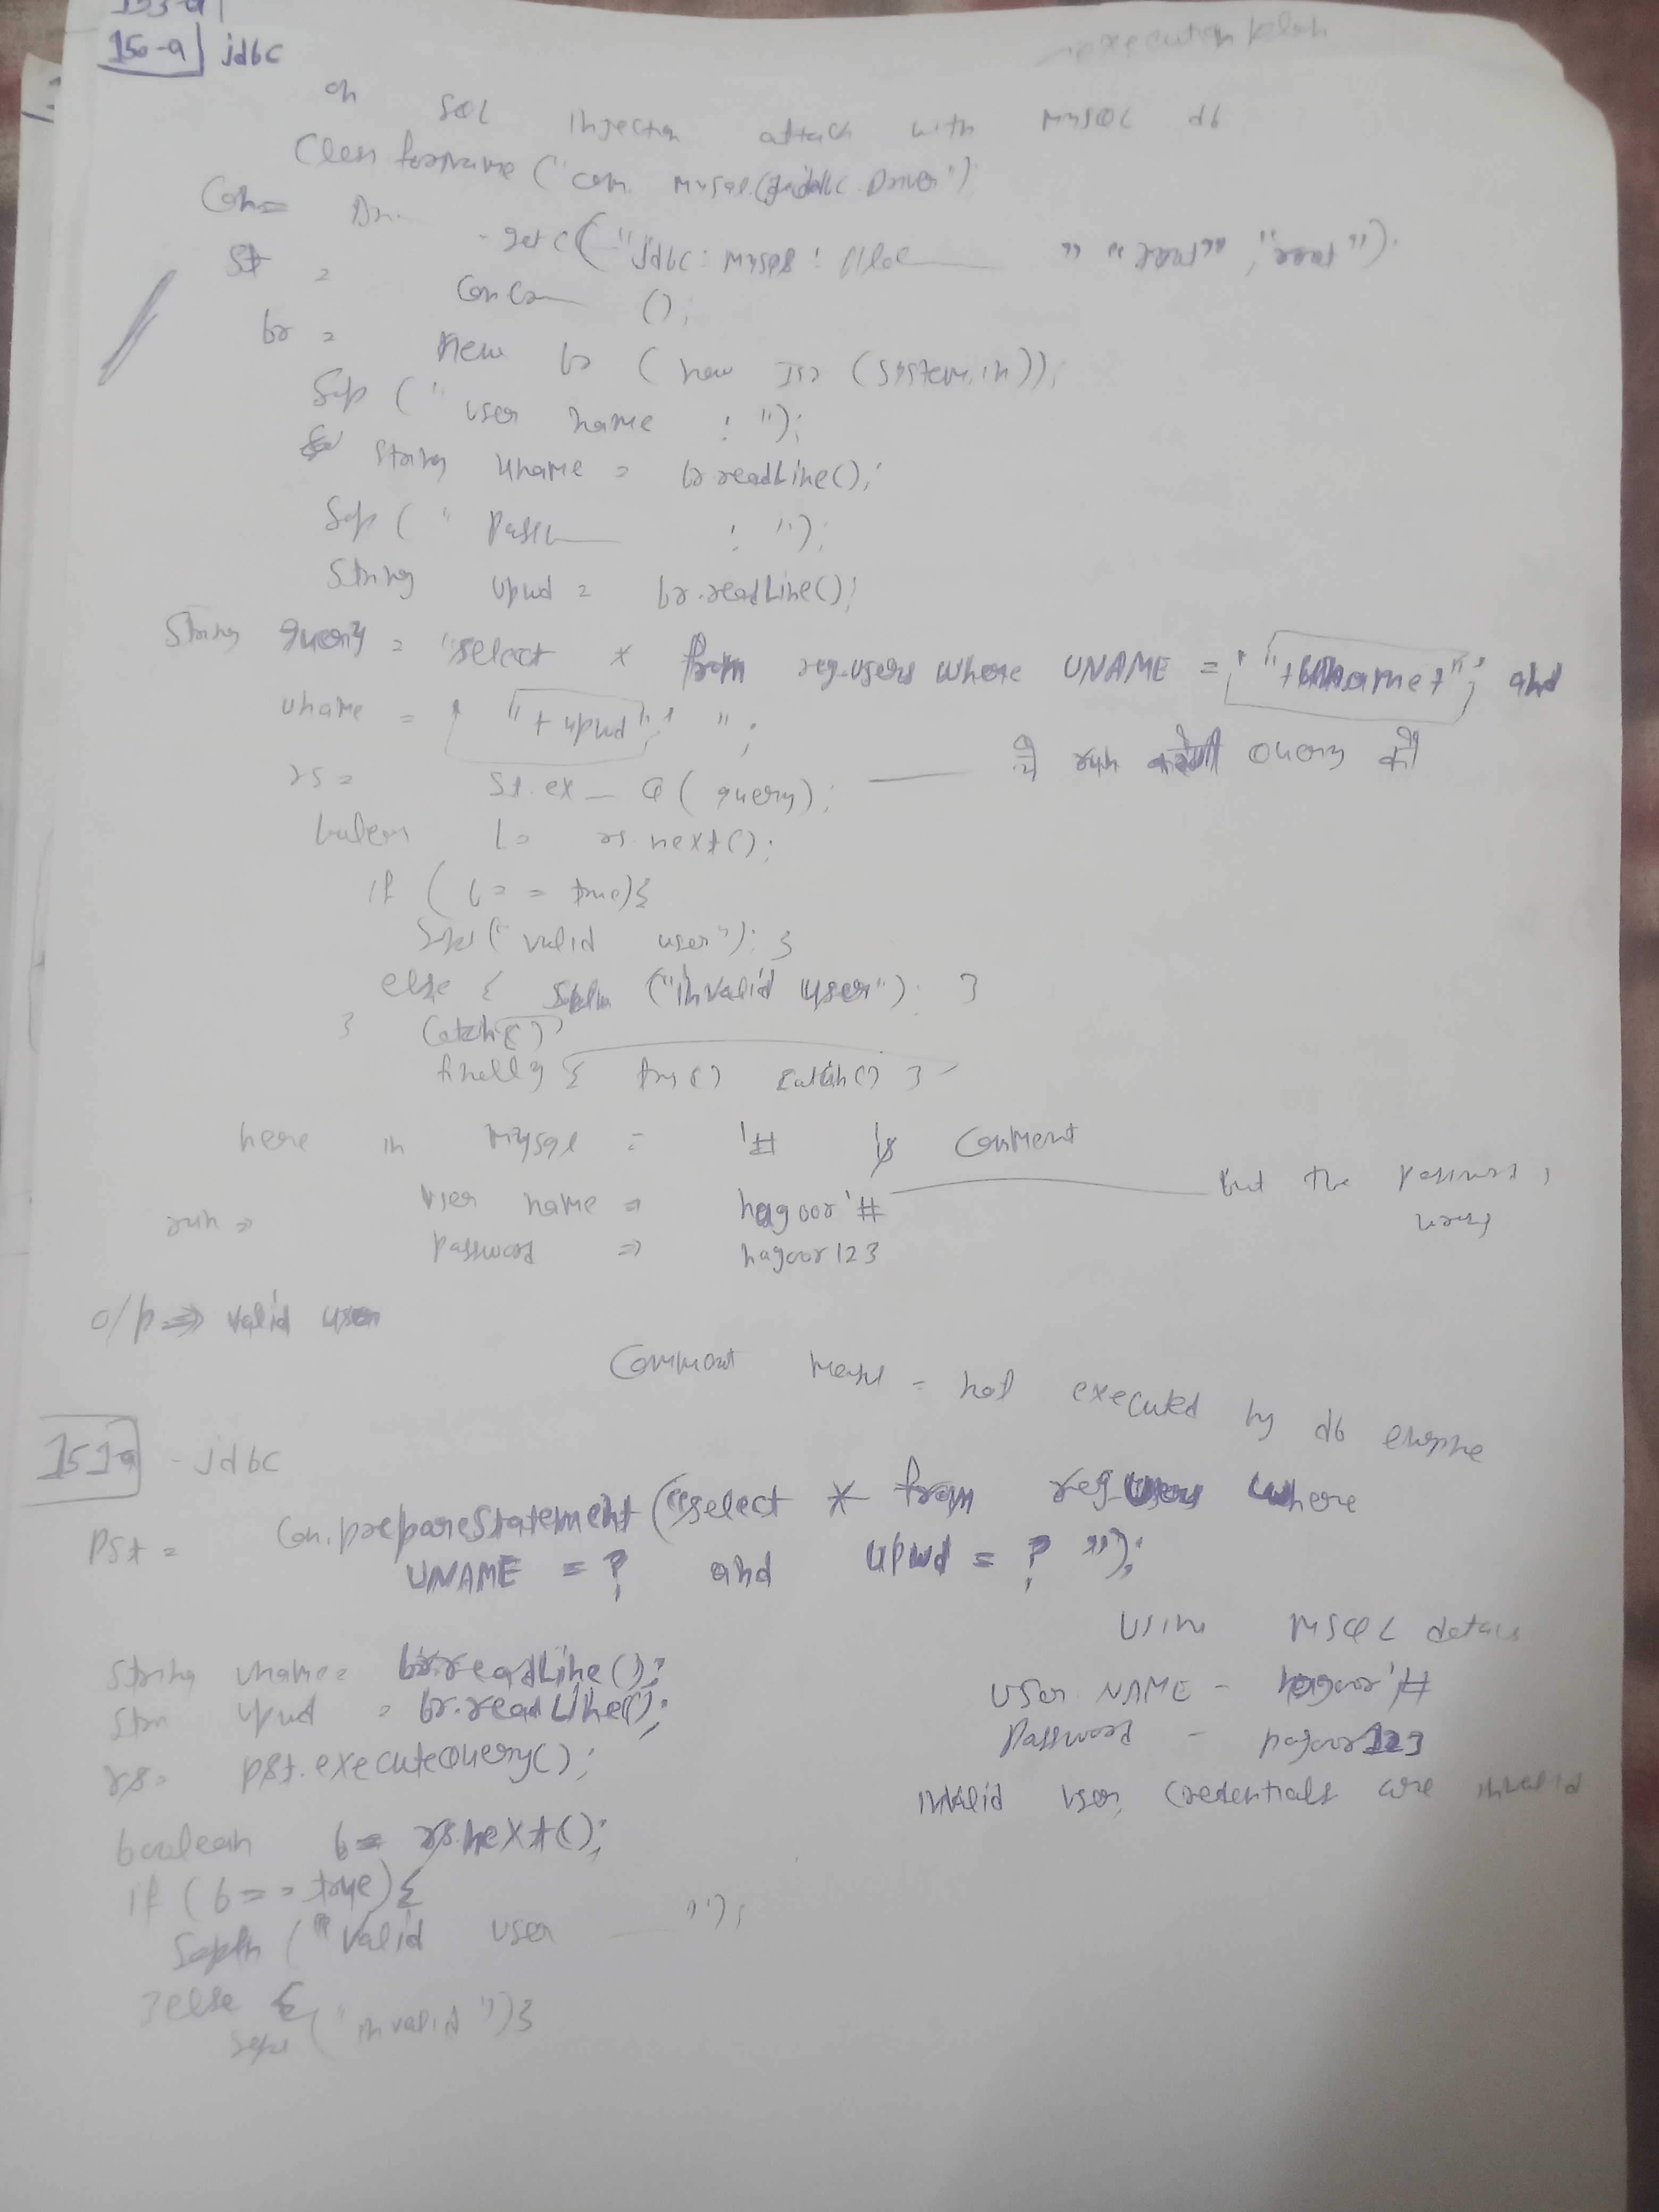 153-a
150-a jdbc
execution plan
on SQL injection attack with MySQL db
Class forname ("com. mysql.cj.jdbc.Driver")
Con= Dr — .getC("jdbc:mysql://loc — "root", "root");
St = Con.Cr — ();
br = new br (new Isr (System.in));
Sop (" user name : ");
String uname = br.readLine();
Sop (" Pass — : ");
String upwd = br.readLine();
String query = "select * from reg_users where UNAME = '"+uname+"' and
uname = '"+upwd"' ";
rs = St.ex — Q (query); — ये run करेगी query को
b= rs.next();
if (b== true){
("valid user"); }
else { Sopln ("invalid user"); }
} Catch()
finally { try() catch() }
here in Mysql = '# is Comment
run => User name => nagoor'# — but the password,
wrong
Password => nagoor123
o/p => valid user
Comment means = not executed by db engine
151-a - jdbc
PSt = Con.prepareStatement ("select * from reg_Users where
UNAME = ? and upwd = ? ");
String uname= br.readLine();
Strn upwd = br.readLine();
rs= pst.executeQuery();
boolean b= rs.next();
if (b== true){
Sopln ("Valid user — ");
}else {
("invalid")}
Using MSQL details
User NAME - nagoor'#
Password - nagoor123
invalid user, Credentials are invalid